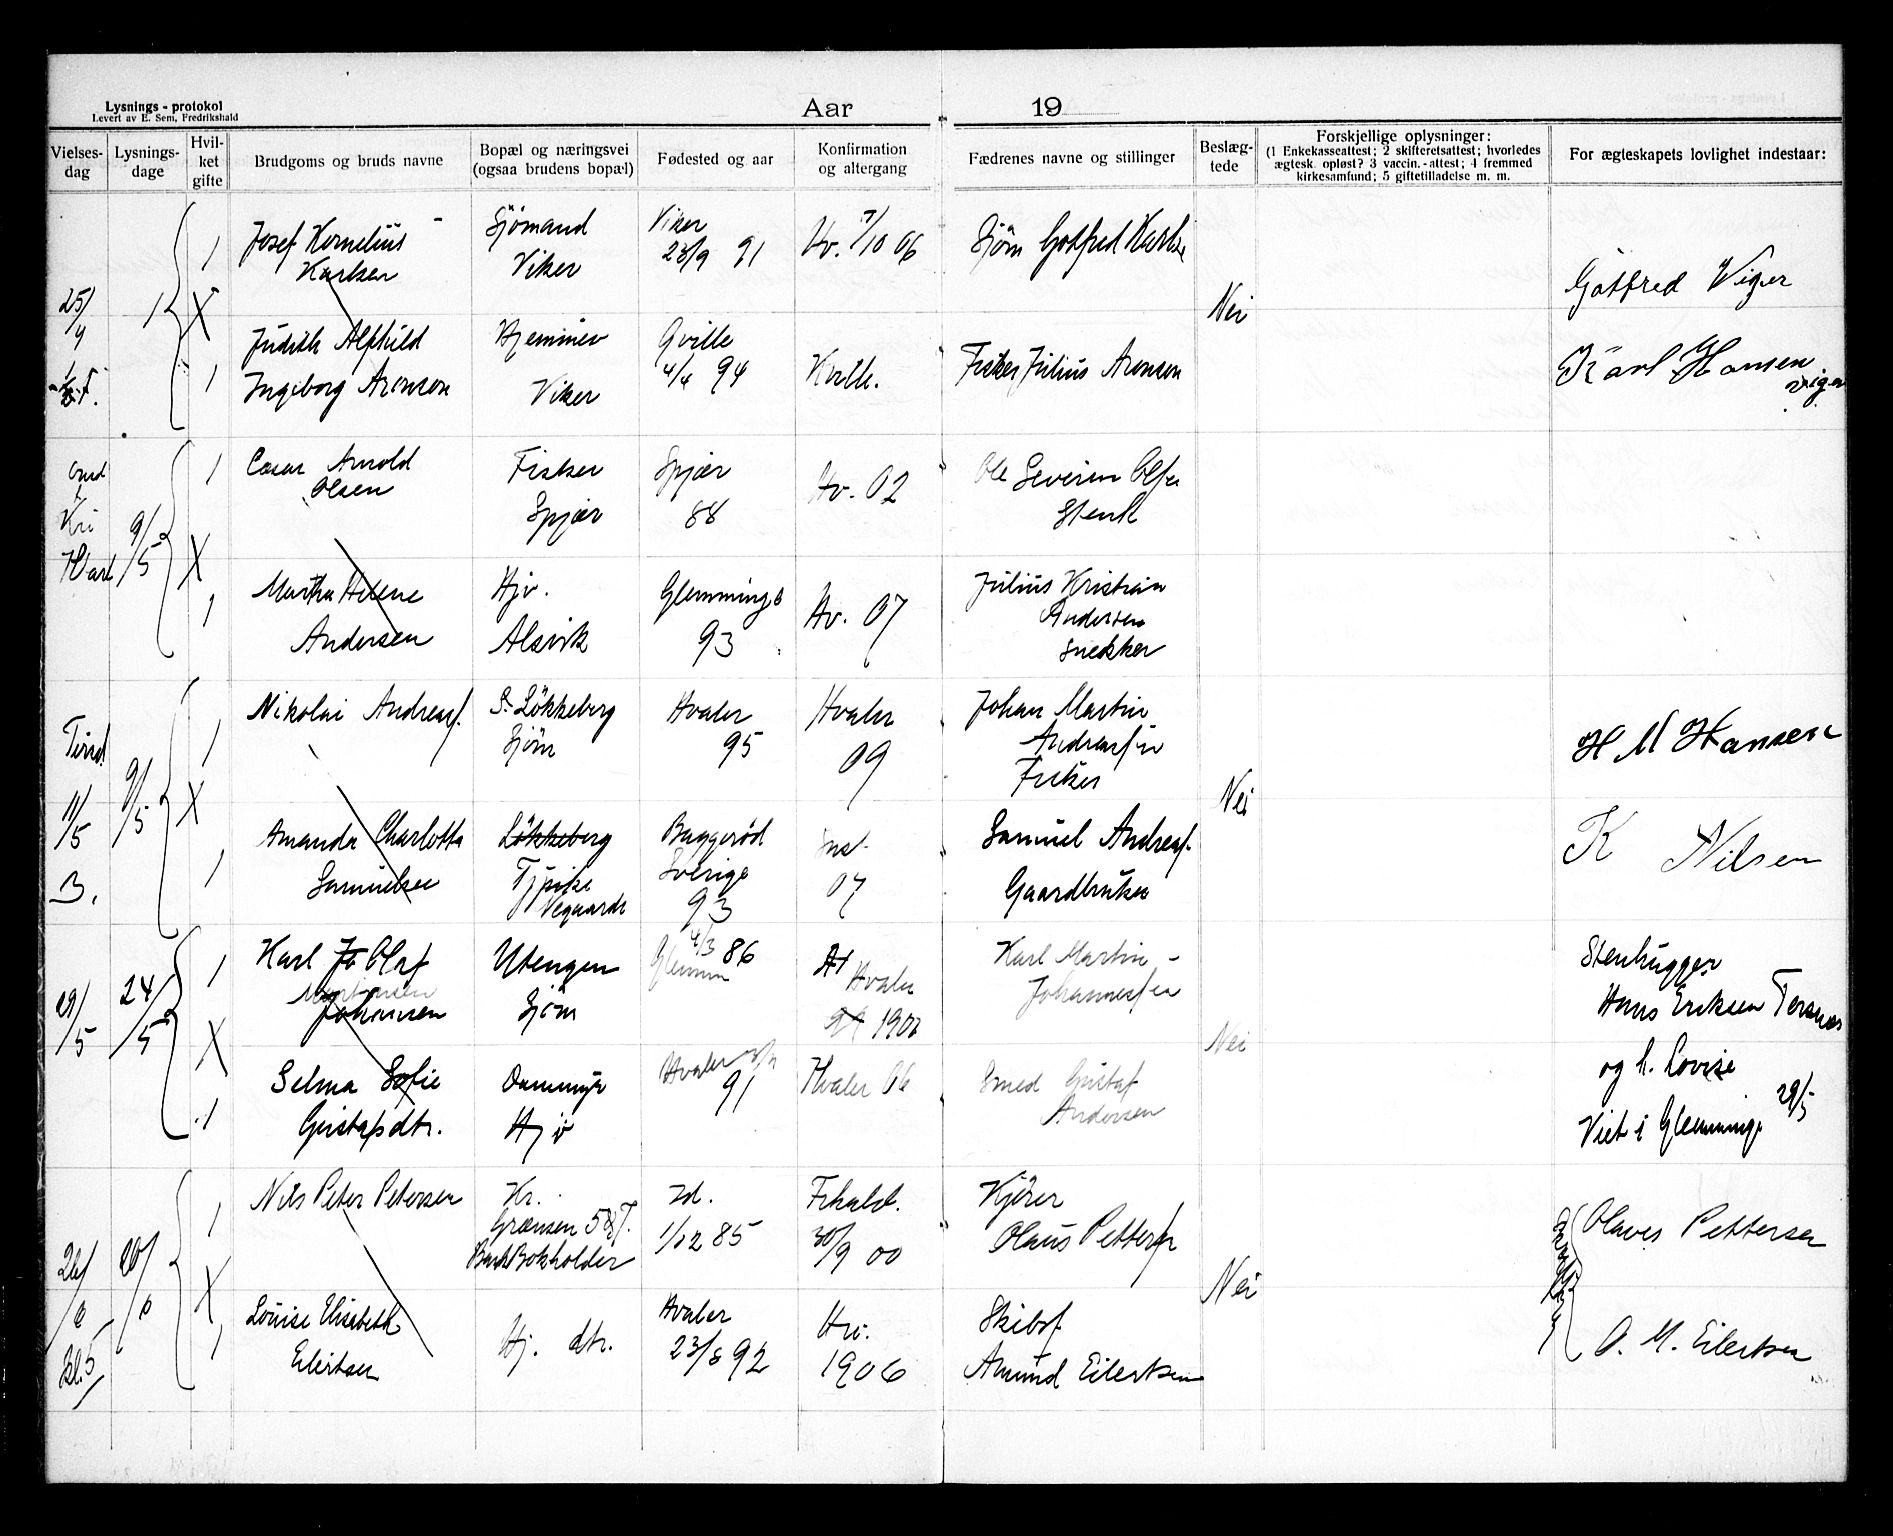 Lysnings - protokol
Levert av E. Sem, Fredrikshald
Aar 19
Vielses-dag
Lysnings-dage
Hvil-ket gifte
Brudgoms og bruds navne
Bopæl og næringsvei (ogsaa brudens bopæl)
Fødested og aar
Konfirmation og altergang
Fædrenes navne og stillinger
Beslæg-tede
Forskjellige oplysninger:
(1 Enkekasseattest; 2 skifteretsattest; hvorledes
ægtesk. opløst? 3 vaccin.-attest; 4 fremmed
kirkesamfund; 5 giftetilladelse m. m.
For ægteskapets lovlighet indestaar:
25/4
1
Josef Kornelius Karlsen
Sjömand
Viker
Viker
23/9 91
Hv. 7/10 06
Sjöm Gotfred Karlse
Nei
Gotfred Viger
1
Judith Alfhild
Ingeborg Aronson
Hjemmev
Viker
Qville
4/4 94
Kville.
Fisker Julius Aronsen
Karl Hansen
viger
9/5
1
Casar Arnold
Olsen
Fisker
Spjær
Spjær
88
Hv. 02
Ole Severin Olsen
Stenh
X
1
Martha Helene
Andersen
Hjv.
Alsvik
Glemminge
93
Hv. 07
Julius Kristian
Andersen
Snekker
Tirsd
11/5
3.
9/5
1
Nikolai Andreass.
S. Lökkeberg
Sjöm
Hvaler
95
Hvaler
09
Johan Martin
Andreassen
Fisker
Nei
H M Hansen
X
1
Amanda Charlotta
Samuelsen
Lökkeberg
Tjpike
Vegaarde
Baggeröd
Sverige
93
07
Samuel Andreass.
Gaardbruker
K Nilsen
29/5
24/5
1
Karl Jo Olaf
Martinsen
Johansen
Utengen
Sjöm
4/3 86
Glemm
Hvaler
Karl Martin -
Johannessen
Nei
Stenhugger
Hans Eriksen Tersnes
X
1
Selma Sofie
Gustafsdtr.
Dammyr
Hjv
Hvaler
91
Hvaler 06
Smed Gustaf
Andersen
og h. Lovise
Viet i Glemminge 29/5
26/6
20/6
1
Nils Peter Petersen
Kr.
Grænsen 58 T.
Bank Bokholder
Id.
1/12 85
Frhald.
30/9 00
Kjörer
Olaus Petters.
Nei
Olaves Pettersen
X
1
Louise Elisabeth
Eilertsen
Hj. dtr.
Hvaler
23/8 92
Hv.
1906
Skibsf
Amund Eilertsen
A. M. Eilertsen
Kl. 5